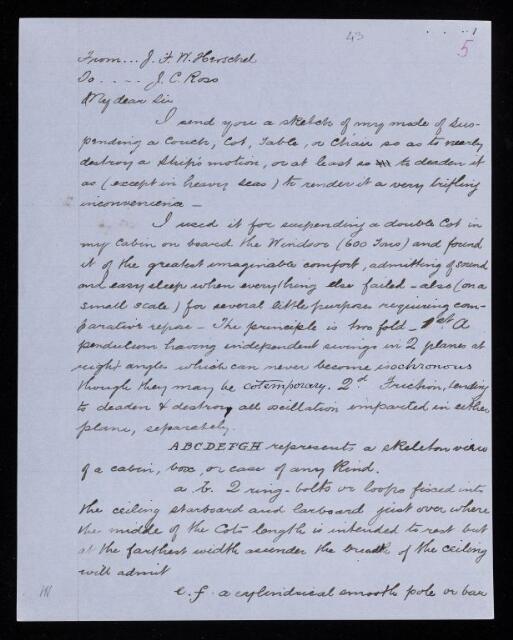 43
5
From... J. F. W. Herschel
To.... J. C. Ross
My dear Sir
I send you a sketch of my mode of sus-
pending a Couch, Cot, Table, or Chair so as to nearly
destroy a Ship's motion, or at least so to deaden it
as (except in heavy seas) to render it a very trifling
inconvenience —
I used it for suspending a double Cot in
my Cabin on board the Windsor (600 Tons) and found
it of the greatest imaginable comfort, admitting of sound
and easy sleep when everything else failed – also (on a
small scale) for several little purposes requiring com-
parative repose – The principle is two fold – 1st A
pendulum having independent swings in 2 planes at
right angles which can never become isochronous
though they may be cotemporary. 2d Friction, tending
to deaden & destroy all oscillation imparted in either
plane, separately.
ABCDEFGH represents a skeleton view
of a cabin, box, or case of any kind.
a b. 2 ring-bolts or loops fixed into
the ceiling starboard and larboard just over where
the middle of the Cots length is intended to rest but
at the farthest width asunder the breadth of the ceiling
will admit
e. f. a cylindrical smooth pole or bar